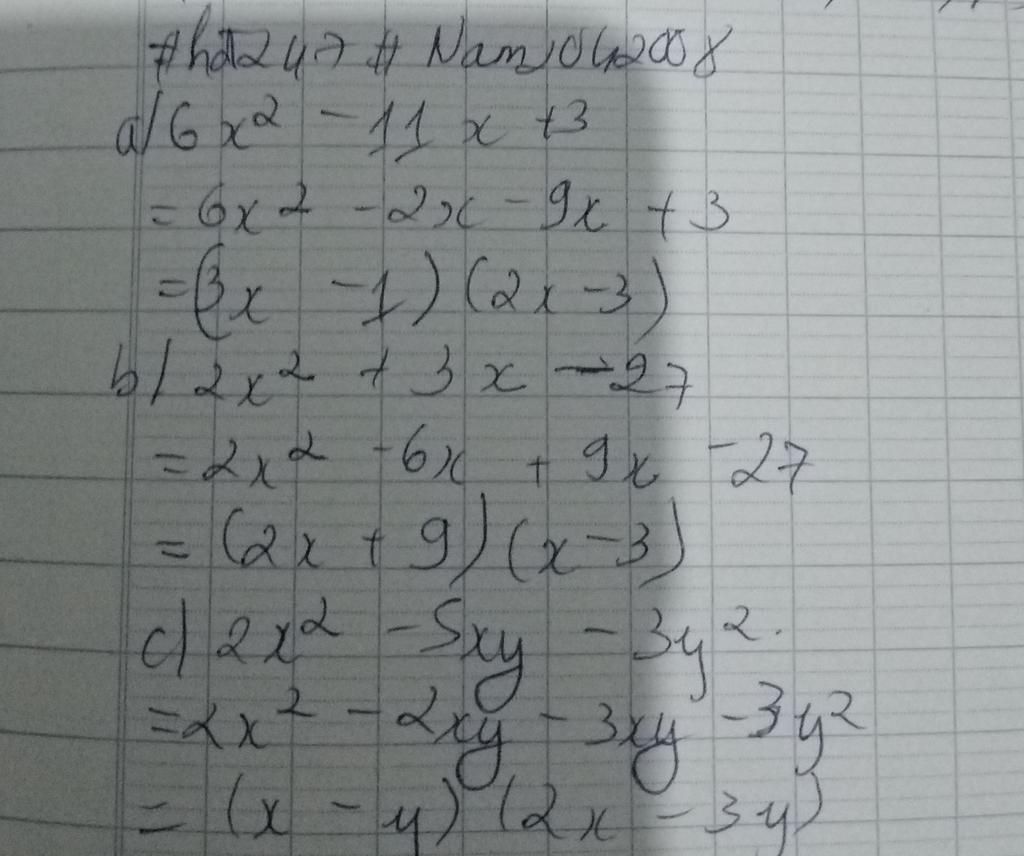 #hdt247 # Nam1042008
a/ 6x² - 11x + 3
= 6x² - 2x - 9x + 3
= (3x - 1) (2x - 3)
b/ 2x² + 3x - 27
= 2x² - 6x + 9x - 27
= (2x + 9) (x - 3)
c/ 2x² - 5xy - 3y².
= 2x² - 2xy - 3xy - 3y²
= (x - y) (2x - 3y)